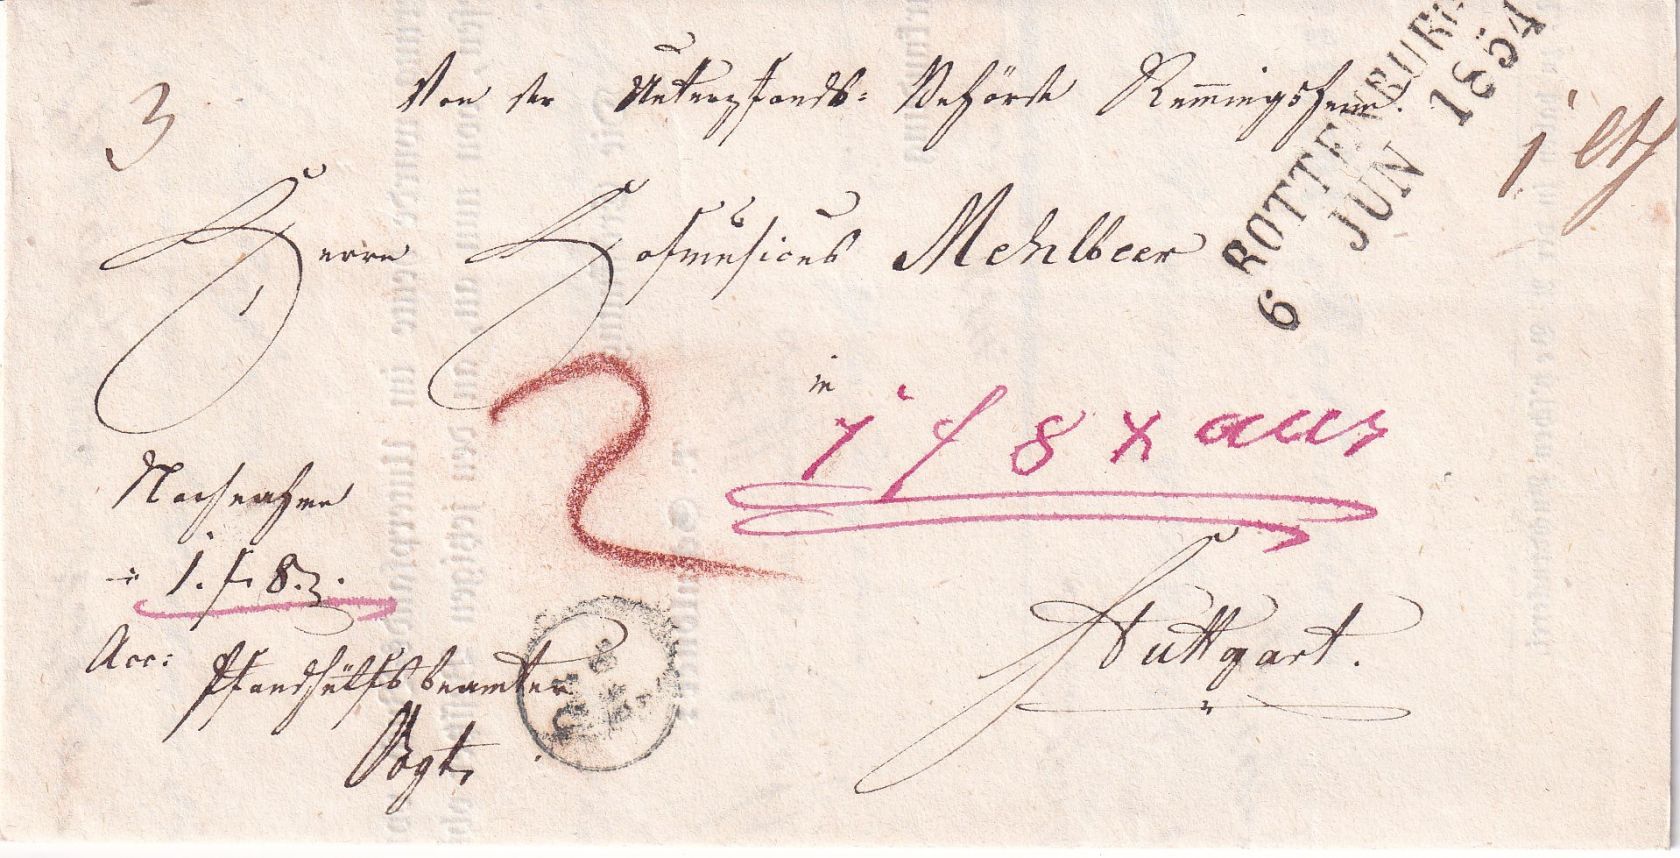 3
Von der Unterpfands-Behörde Remmingsheim.
ROTTENBURG
6 JUN 1854
1 Lth
Herrn Hofmusicus Mehlbeer
in
2
1 f 8 x aus
Stuttgart.
Nachnahme
1. f. 8 x.
Acc: Pfandhülfsbeamter
Vogt.